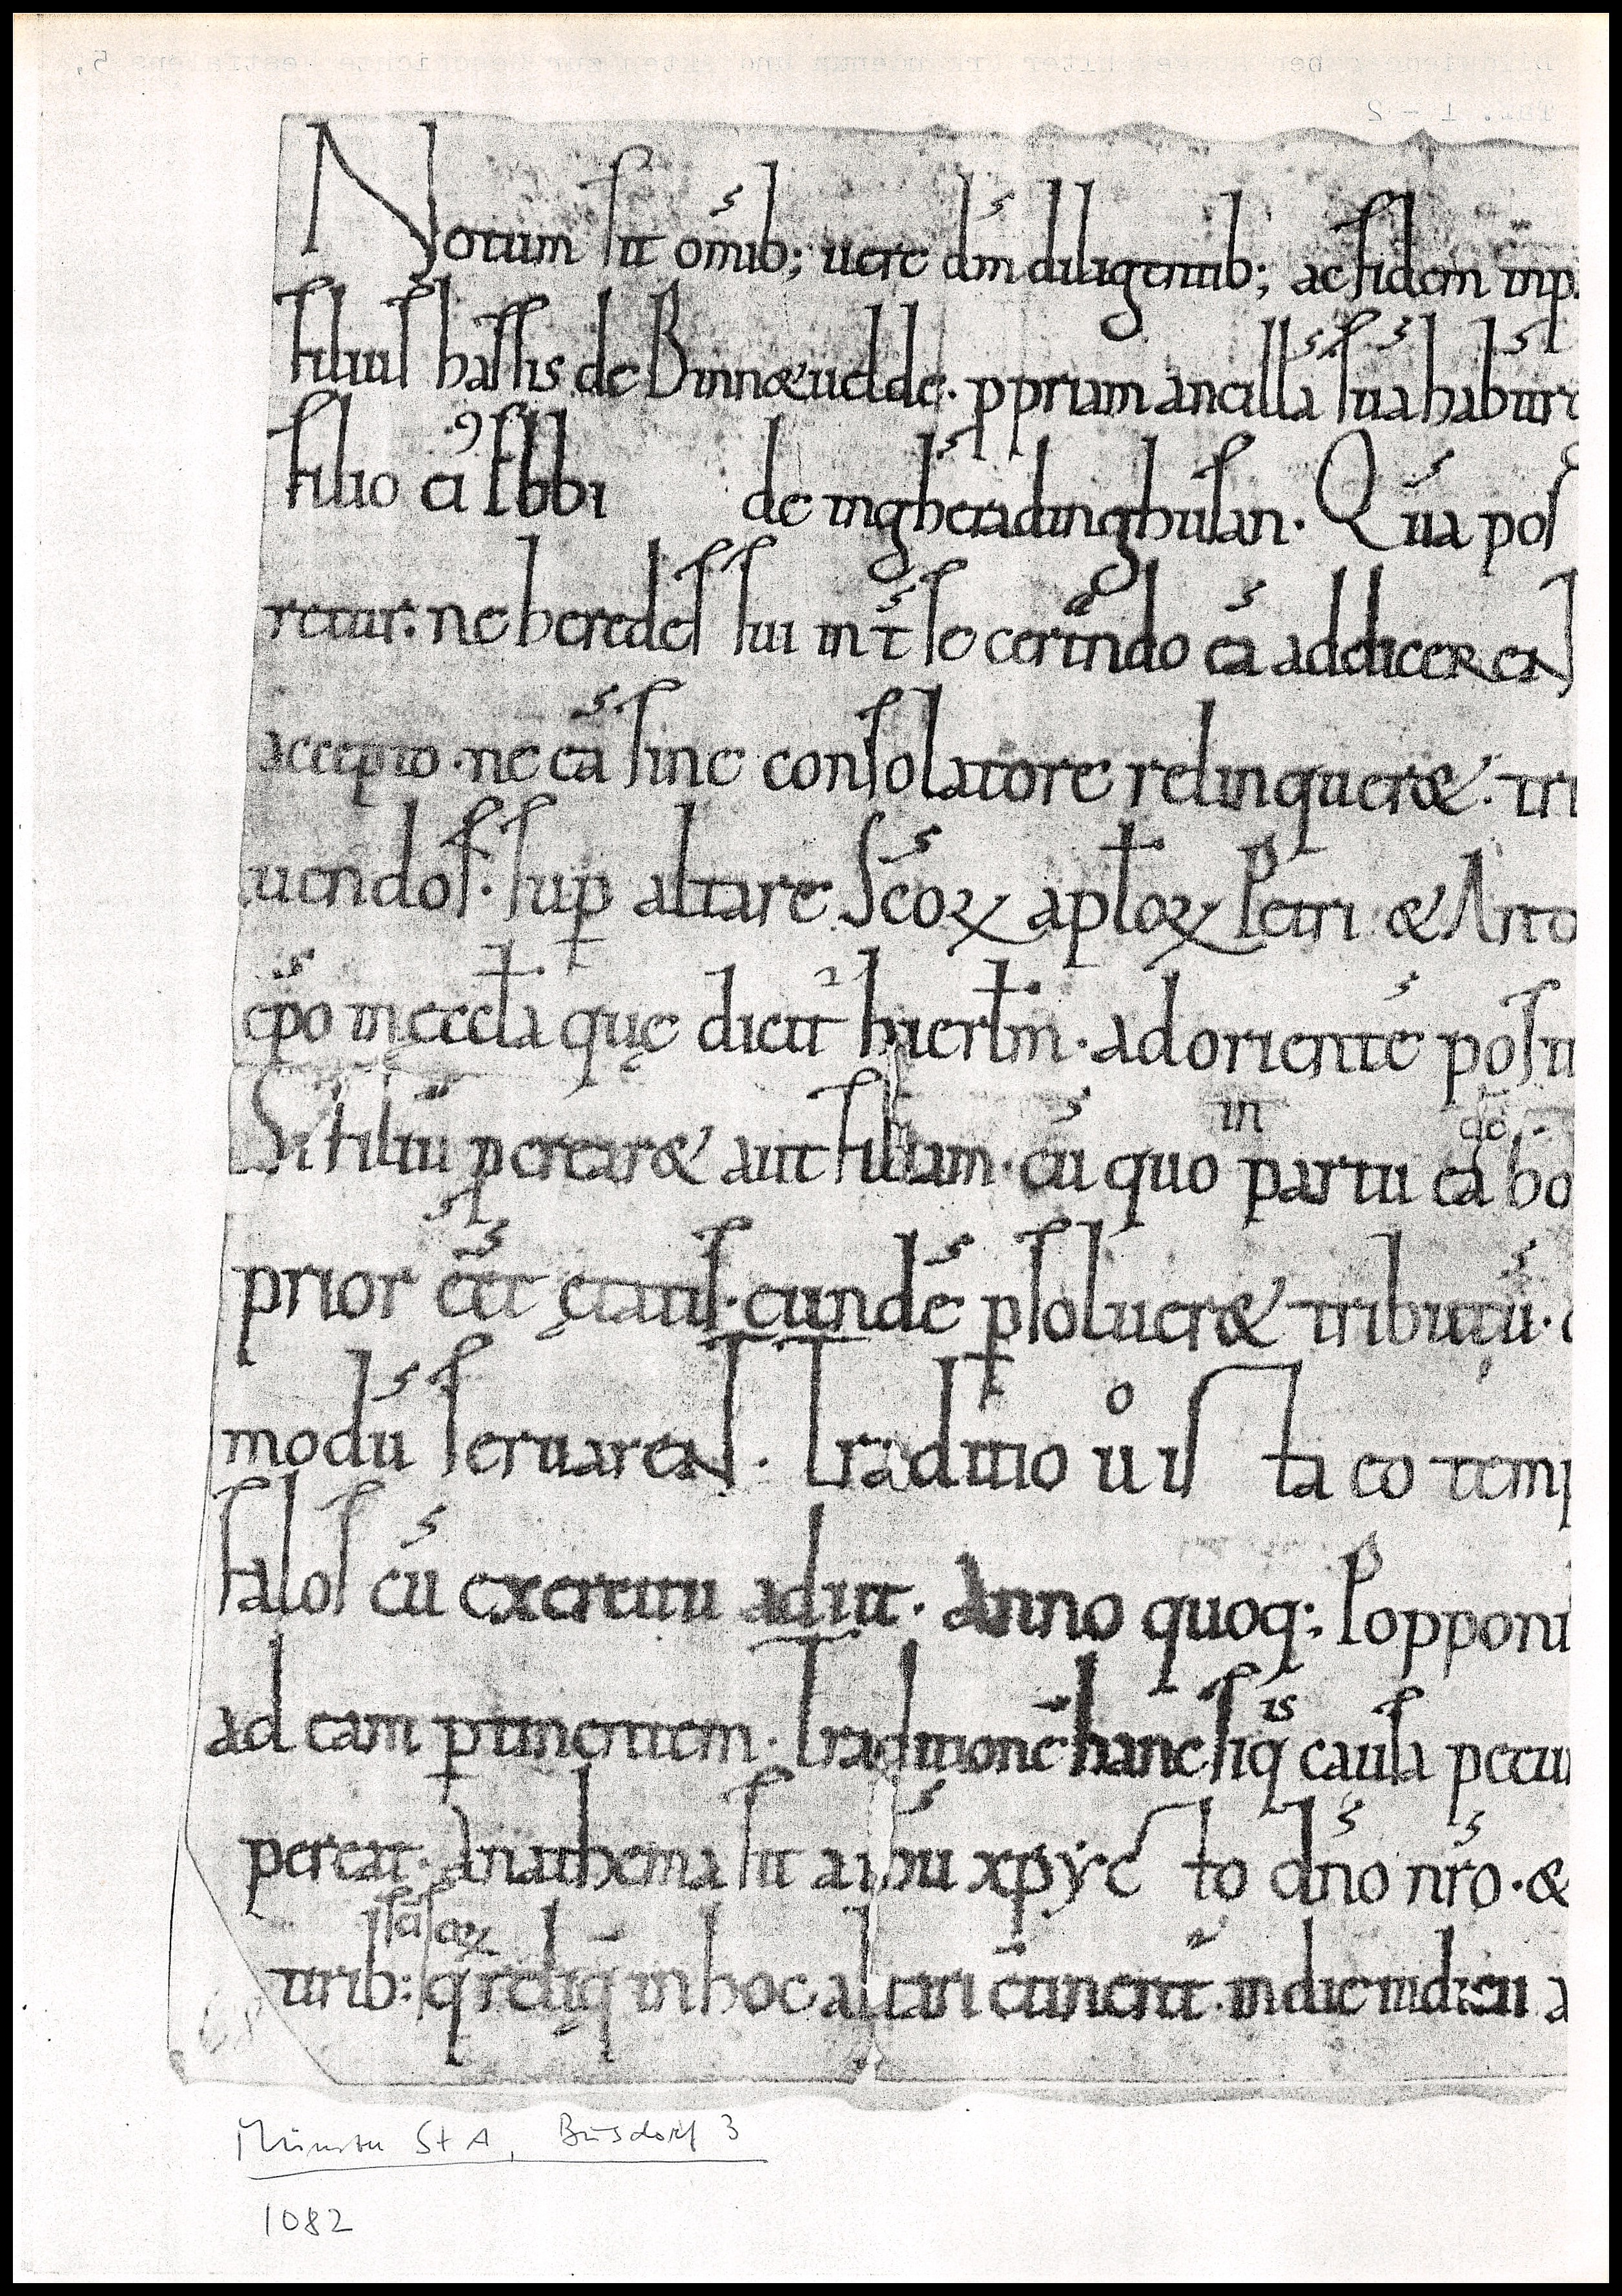 Notum sit om̄ib; uere dm̄ diligentib; ac fidem inp
filiuſ haſſis de Binnæuelde. ꝓpriam ancillā ſuā habuit
filio ei᷒ Ebbi de ingheradinghuſan. Quā poſ
retur. ne heredeſ ſui int̄ ſe certando eā addicerent
accepto. ne eā ſine conſolatore relinqueret. tri
uendoſ. ſuꝑ altare ſc̄oꝝ apłoꝝ Petri & An
ep̄o in ęccła quę dicit᷑ hierłm. ad orientē poſi
Si filiū ꝑcrearet aut filiam. cū quo in partu eā ho
prior ēet ętatiſ. eundē ꝑſolueret tributū.
modū ſeruarent. Traditio ůiſta eo temp
ſaloſ cū exercitu adiit. Anno quoq; Popponi
ad eam ꝑtinentem. Traditionē hanc ſiqis cauſa pecu
pereat. Anathema ſit a ihū xp̄ẏcſto dn̄o nr̄o. &
tirib: q̄ꝝ reliq̄ in hoc altari ꝯtinent᷑. in die iudicii a
Münster StA, Busdorf 3
1082